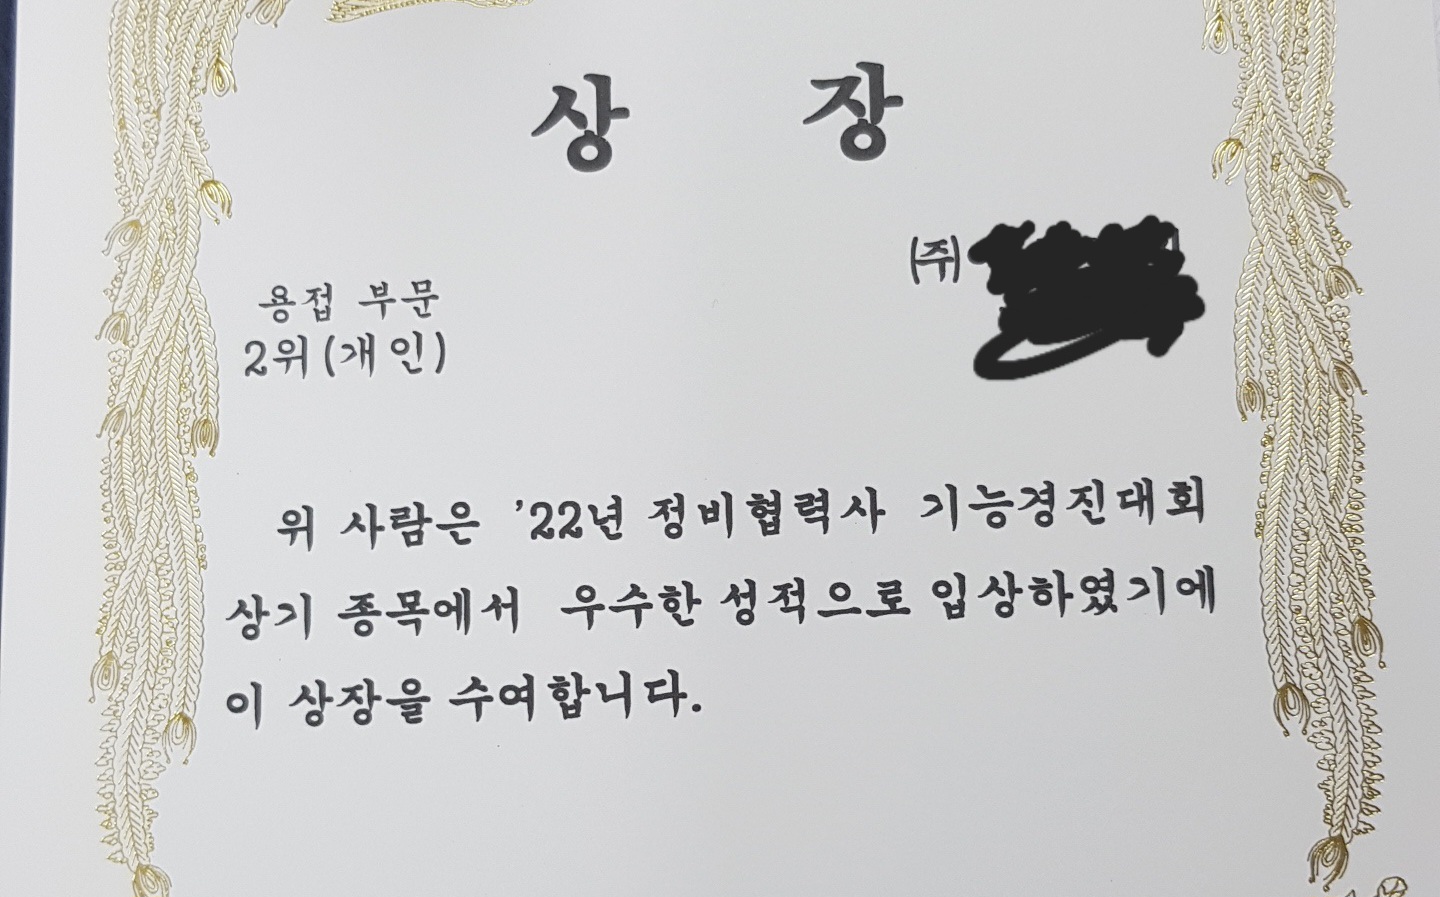 상 장
(주)
용접 부문
2위(개인)
위 사람은 '22년 정비협력사 기능경진대회
상기 종목에서 우수한 성적으로 입상하였기에
이 상장을 수여합니다.